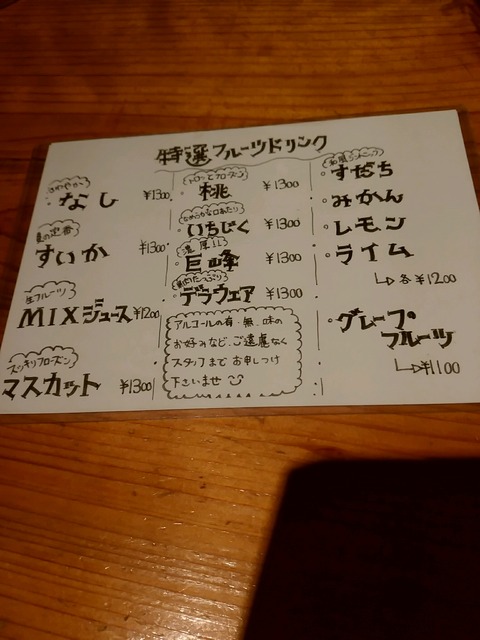 特選フルーツドリンク
さわやか
・なし ¥1300
夏の定番
すいか ¥1300
生フルーツ
MIXジュース ¥1200
スッキリフローズン
マスカット ¥1300
トロ〜とフローズン
・桃 ¥1300
なめらかな口あたり
・いちじく ¥1300
濃厚!!
・巨峰 ¥1300
果肉たっぷり
・デラウェア ¥1300
アルコールの有・無、味の
お好みなど、ご遠慮なく
スタッフまでお申しつけ
下さいませ
・すだち
・みかん
・レモン
・ライム
各¥1200
・グレープ
フルーツ
¥1100